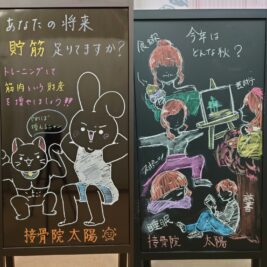 あなたの将来
貯筋足りてますか?
トレーニングして
筋肉という財産
を増やしましょう!!
接骨院 太陽
今年は
どんな秋?
食欲
芸術
スポーツ
読書
睡眠
接骨院 太陽